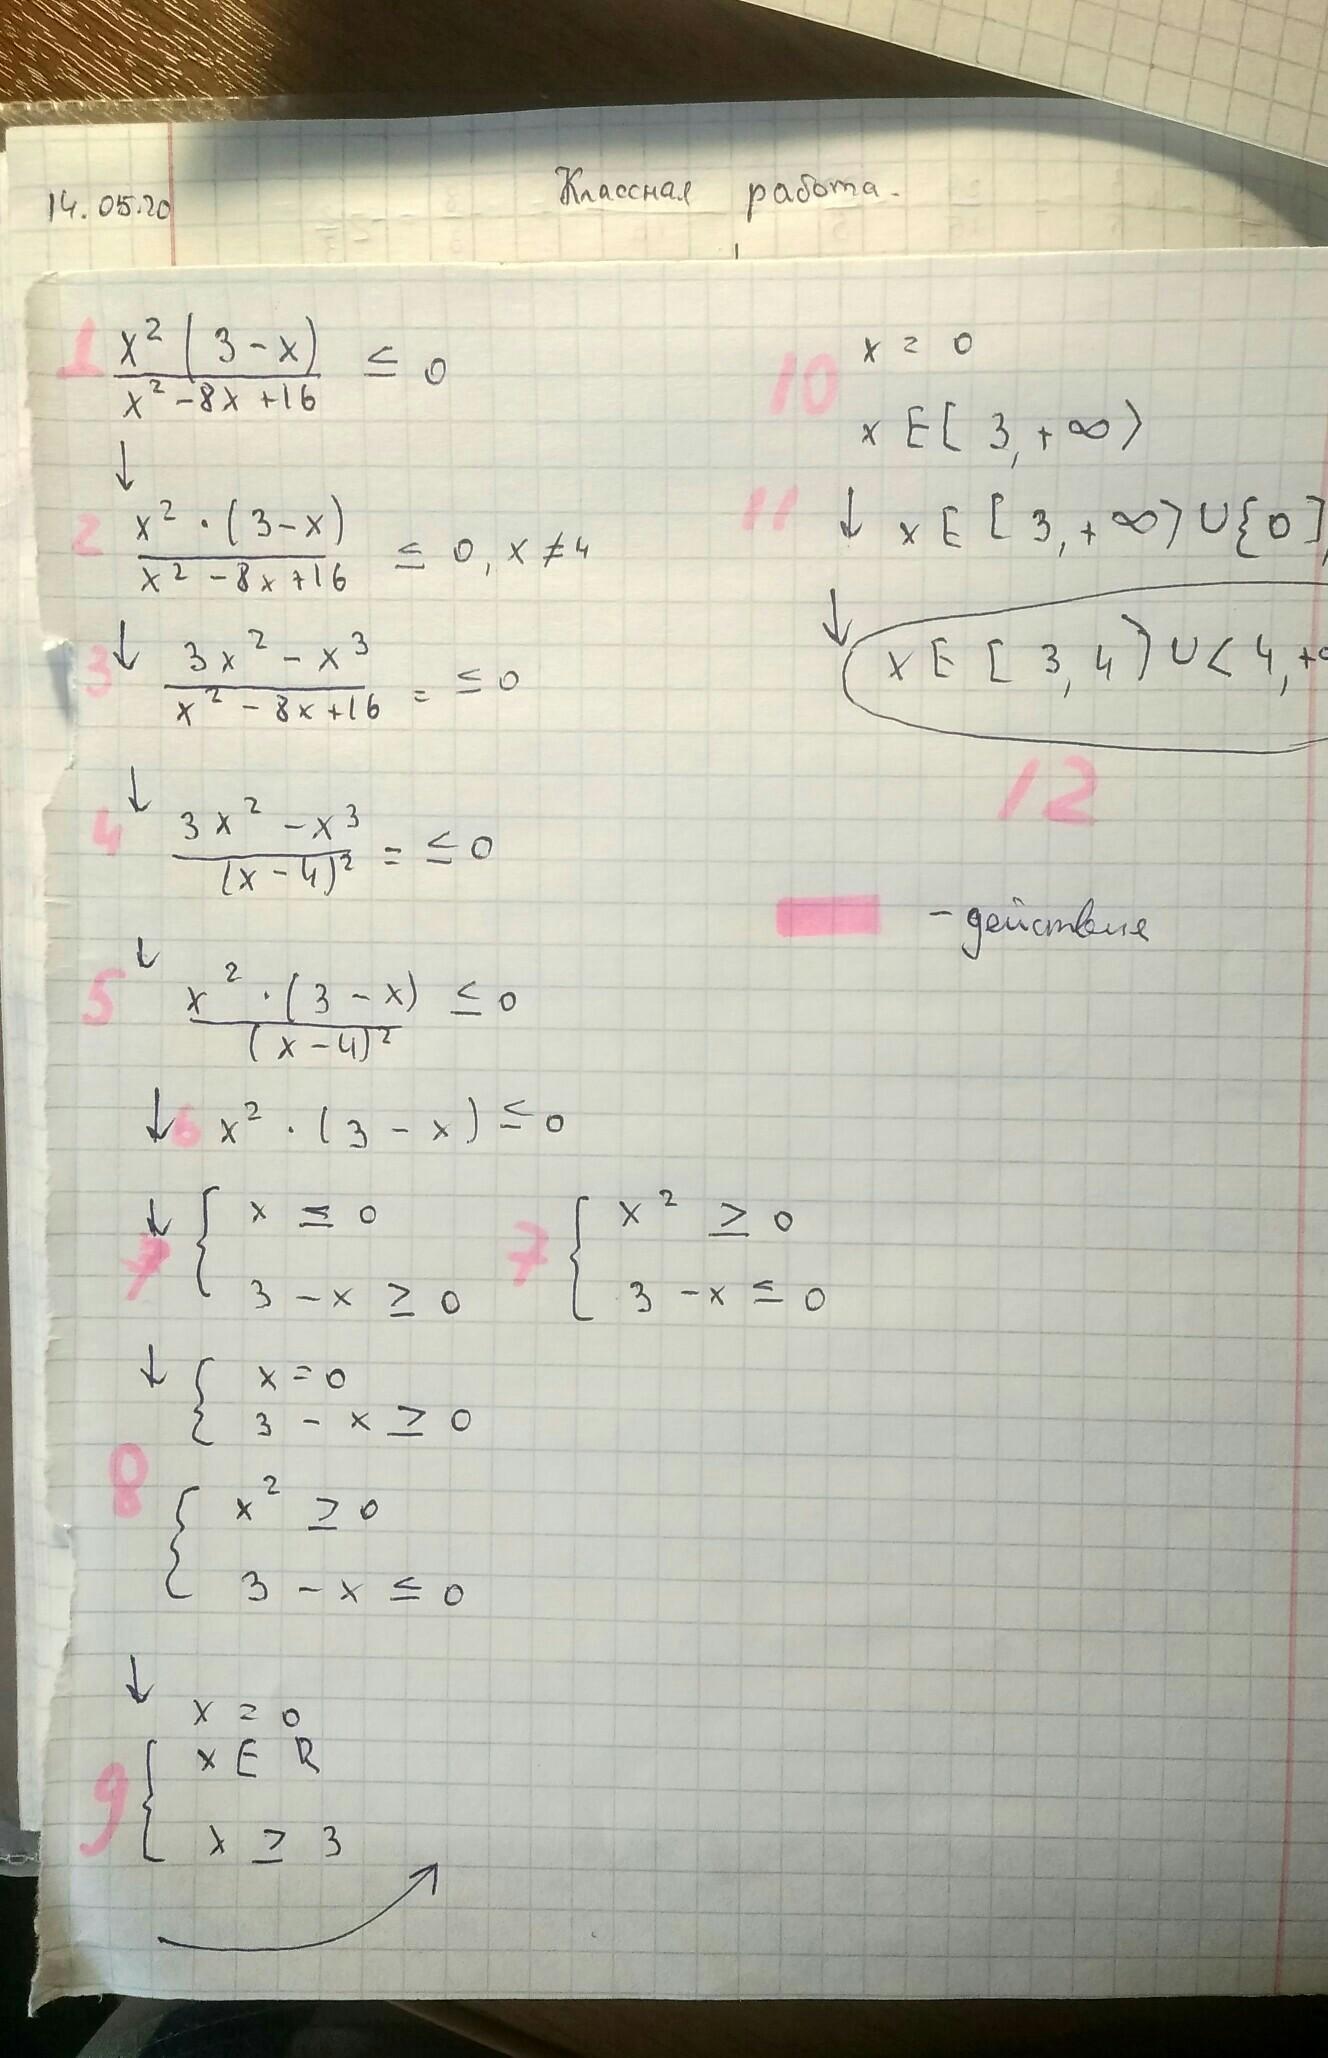 14.05.20
Классная работа.
1 x² (3-x) / x² -8x +16 ≤ 0
↓
2 x² · (3-x) / x² -8x +16 ≤ 0, x ≠ 4
↓
3 3x² - x³ / x² - 8x +16 = ≤ 0
↓
4 3x² - x³ / (x - 4)² = ≤ 0
↓
5 x² · (3 - x) / (x - 4)² ≤ 0
↓ 6 x² · (3 - x) ≤ 0
↓ 7 { x ≤ 0
3 - x ≥ 0
7 { x² ≥ 0
3 - x ≤ 0
↓ { x = 0
3 - x ≥ 0
8
{ x² ≥ 0
3 - x ≤ 0
↓
x = 0
9 { x E R
x ≥ 3
10 x = 0
x E [ 3, +∞)
11 ↓ x E [ 3, +∞) ∪ {0],
↓
x E [ 3, 4) ∪ < 4, +∞
12
- действие